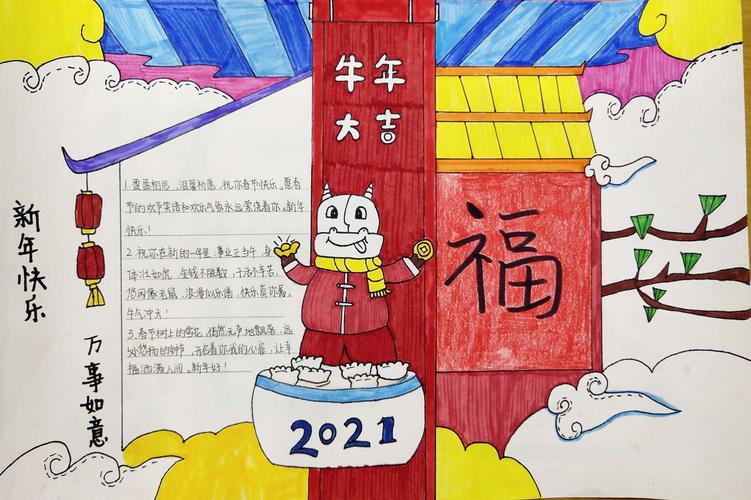 牛年
大吉
1.萱蓝相思,温馨祈愿,祝你春节快乐。愿春
节的欢节笑语和欢乐气氛永远萦绕着你。新年
快乐!
2.祝你在新的一年里:事业正当午,身
体壮如虎,金钱不胜数,干活不辛苦,
悠闲像老鼠,浪漫似乐谱,快乐莫你属。
牛气冲天!
3.春节树上的雪花,悄然无声地飘落,远
处悠扬的钟声,开启着你我的心窗,让幸
福洒满人间。新年好!
新年快乐
万事如意
福
2021